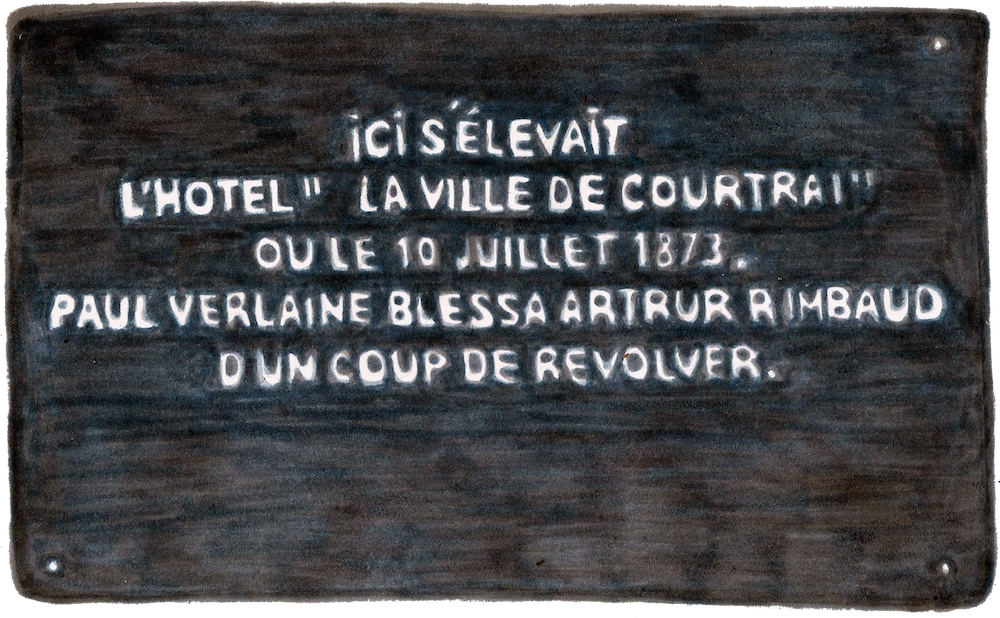 iCi S'ÉLEVAÎT
L'HOTEL" LA VILLE DE COURTRAI"
OU LE 10 JUILLET 1873.
PAUL VERLAINE BLESSA ARTRUR RIMBAUD
D UN COUP DE REVOLVER.